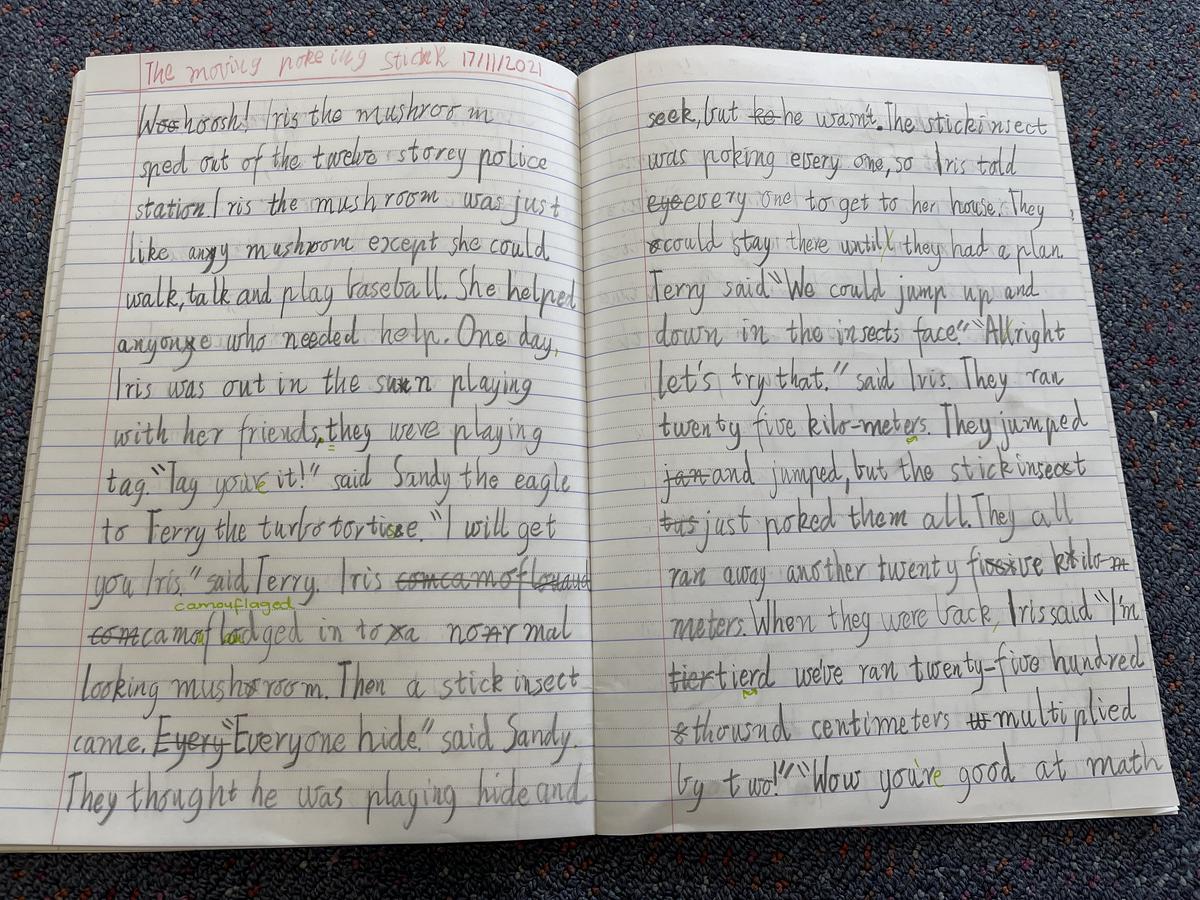 The moving pokeing stick 17/11/2021
Woohoosh! Iris the mushroom
sped out of the twelve storey police
station. Iris the mushroom was just
like any mushroom except she could
walk, talk and play baseball. She helped
anyone who needed help. One day,
Iris was out in the sun playing
with her friends, they were playing
tag. "Tag you're it!" said Sandy the eagle
to Terry the turbo tortise. "I will get
you Iris." said Terry. Iris
camouflaged
camofladged in to a normal
looking mushroom. Then a stick insect
came. Every "Everyone hide." said Sandy.
They thought he was playing hide and
seek, but he wasn't. The stick insect
was poking every one, so Iris told
eye every one to get to her house. They
could stay there until they had a plan.
Terry said "We could jump up and
down in the insects face." "Alright
let's try that." said Iris. They ran
twenty five kilo-meters. They jumped
jan and jumped, but the stick insect
just poked them all. They all
ran away another twenty five kilo-m
meters. When they were back, Iris said "I'm
tier tierd we've ran twenty-five hundred
thousnd centimeters multiplied
by two!" "Wow you're good at math